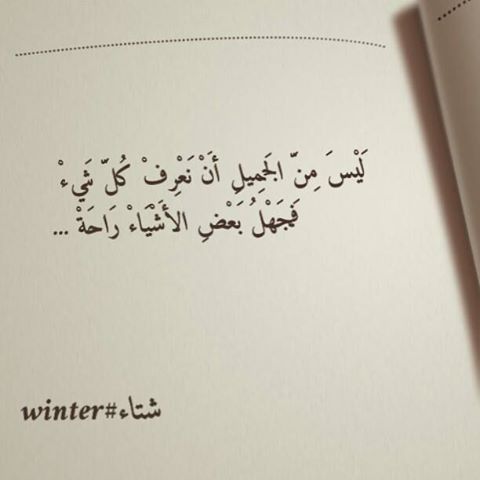 لَيْسَ مِنَّ الجَمِيلِ أَنْ نَعْرِفْ كُلّ شَيءْ
فَجَهْلُ بَعْضِ الأَشْيَاءْ رَاحَةْ ...
شتاء#winter